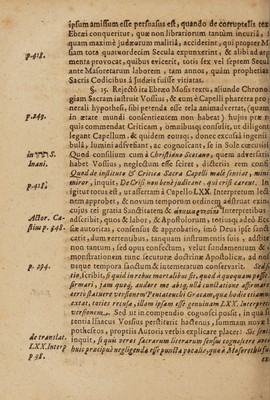 ipsum amissum esse persuasus est, quando de corruptela tex
Ebræi conqueritur, quæ non librariorum tantùm incuriâ, 
quam maximè judæorum malitiâ, acciderint, qui propter M
siam tota quatuordecim Secula expunxerint, & alibi ad ar
p. 418.
menta provocat, quibus evicerit, totis sex vel septem Secul
ante Masoretarum laborem, tam annos, quàm prophetias
Sacris Codicibus à Judæis fuisse vitiatas.
§. 15. Rejectô ita Ebræo Mosis textu, aliunde Chrono
giam Sacram instruit Vossius, & cum è Capelli pharetra prop
p. 249.
nerali hypothesi, sibi petendæ esse tela animadvertat, (quam
in ætate mundi consentientem non habeat) hujus præ
quis commendat Criticam, omnibusq; consulit, ut diligent
legant Capellum, & quidem eousq; donec excussâ ingenii
bulâ, lumini adsveriant, ac cognoscant, se in Sole cœcuti
in S.
Inani.
Quod consilium cum à Christiano Scotano, quem adversariu
habet Vossius, neglectum esse sciret, disertis rem conf
Quod de institute & Critica Sacra Capelli male sentiat, mini
p. 418.
miror, inquit, De Crisi non bene judicare, qui crisi caret. In
igitur totus est, ut asseratam à Capello LXX Interpretum lect
nem approbet, & novum temporum ordinem adstruat exind
cujus rei gratia Sanctitatem &
Actor. Ca-
stiu p. 548.
adscribit, quos & labor, & Apostolorum, totiusq; ad huc E
siæ autoritas, consensus & approbatio, imò Deus ipse sanct
cavit, dum vertentibus, tanquam instrumentis suis, adstitit
non tantum, sed quos confectum, velut fundamentum &
monstrationem nunc secuturæ doctrinæ Apostolicæ, ad no
p. 294.
usque tempora sanctum & intemeratum conservavit. Sed
tio, scribit, si quid in rebus mortalibus sit, quod à quoquam possit
firmari, tam quoq, audere me abiq, ullâ cunctatione affirmare
certo statuere versionem Pentateuchi Græcam, qua hodie etiamn
extat, toties rectusa, illam ipsam esse genuinam LXX. Interpre
versionem. Sed ut in compendio cognosci possit, in qua s
tentia Isaacus Vossius perstiterit hactenus, summam novæ
pothesios, propriis Autoris verbis explicare placet:
de translat.
LXX. Interp
p. 38.
inquit, si quis veros sacrarum literarum sensus cognoscere ave
huic præcipue negligenda esse puncta vocalia, quæ à Masorethis